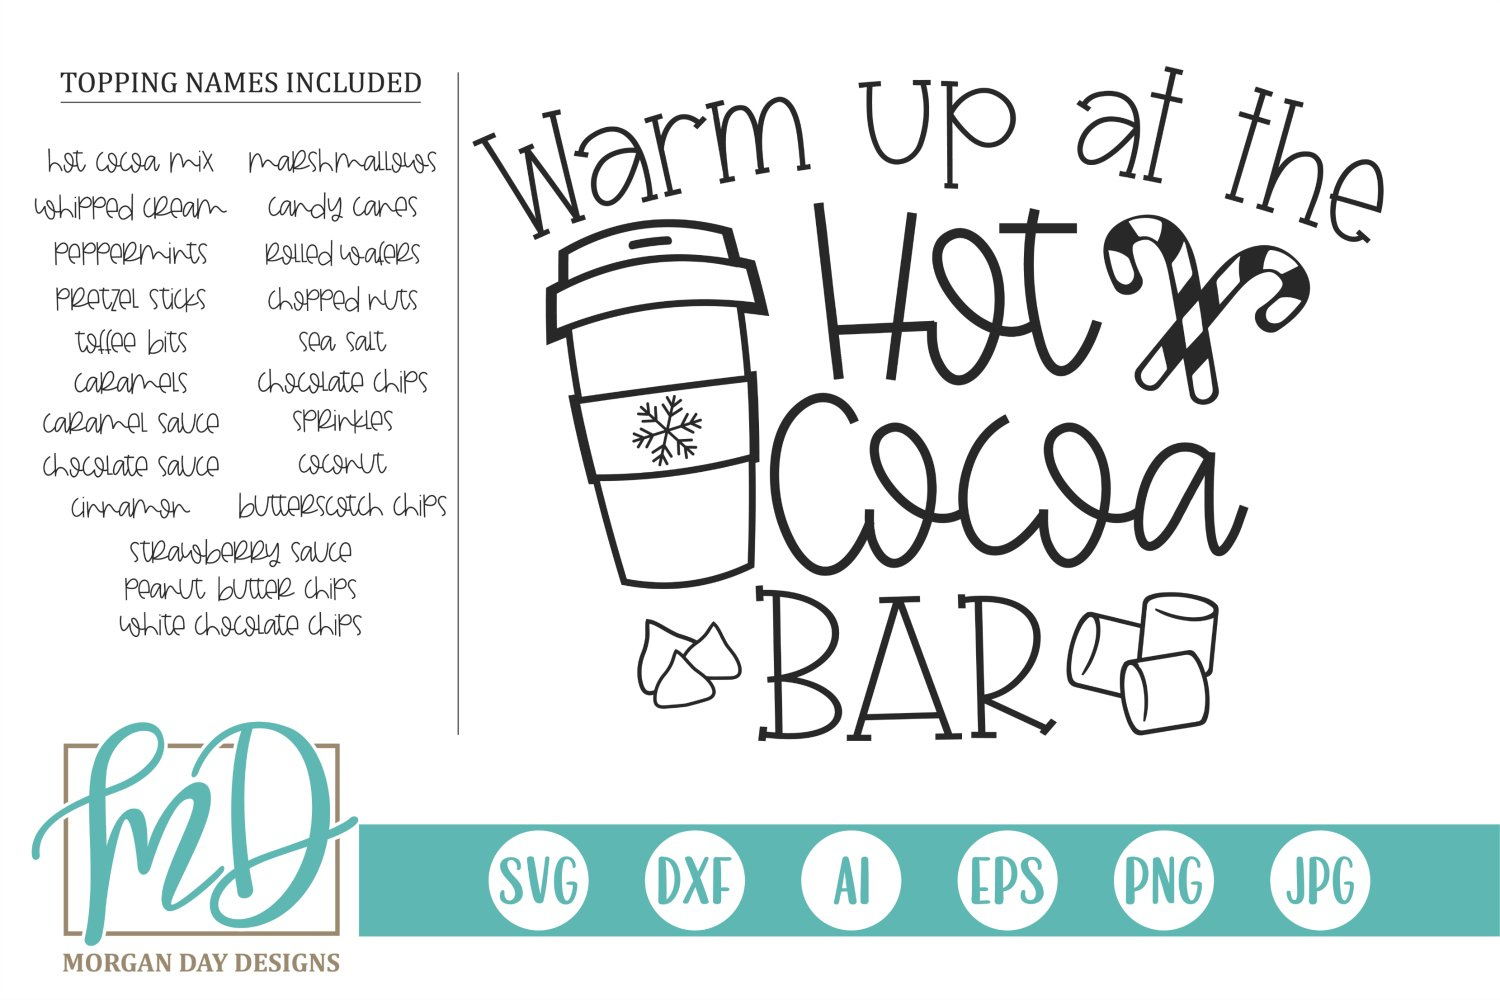 TOPPING NAMES INCLUDED
hot cocoa mix
whipped cream
peppermints
pretzel sticks
toffee bits
caramels
caramel sauce
chocolate sauce
cinnamon
marshmallows
candy canes
rolled wafers
chopped nuts
sea salt
chocolate chips
sprinkles
coconut
butterscotch chips
strawberry sauce
peanut butter chips
white chocolate chips
Warm up at the
Hot
Cocoa
BAR
MD
MORGAN DAY DESIGNS
SVG DXF AI EPS PNG JPG